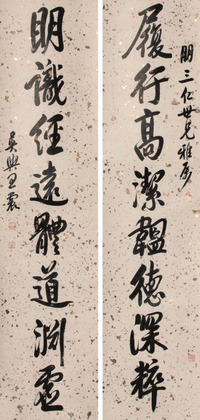 朋三仁世兄雅屬
履行高潔韞德深粹
明識經遠體道淵虛
吳興王震